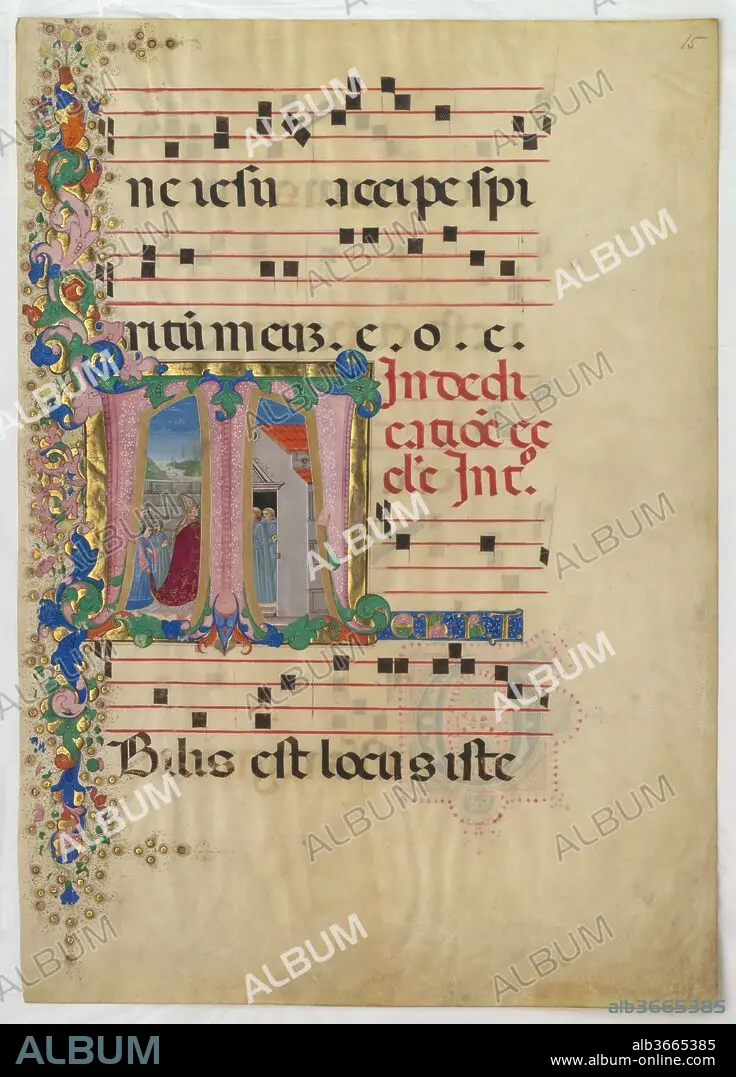 15
ne iesu accipe spi
ritū meuz. e. o. e.
In dedi
catiōe ec
cl'e Int°.
T ERRI
Bilis est locus iste
ALBUM
alb3665385
ALBUM
alb3665385
www.album-online.com